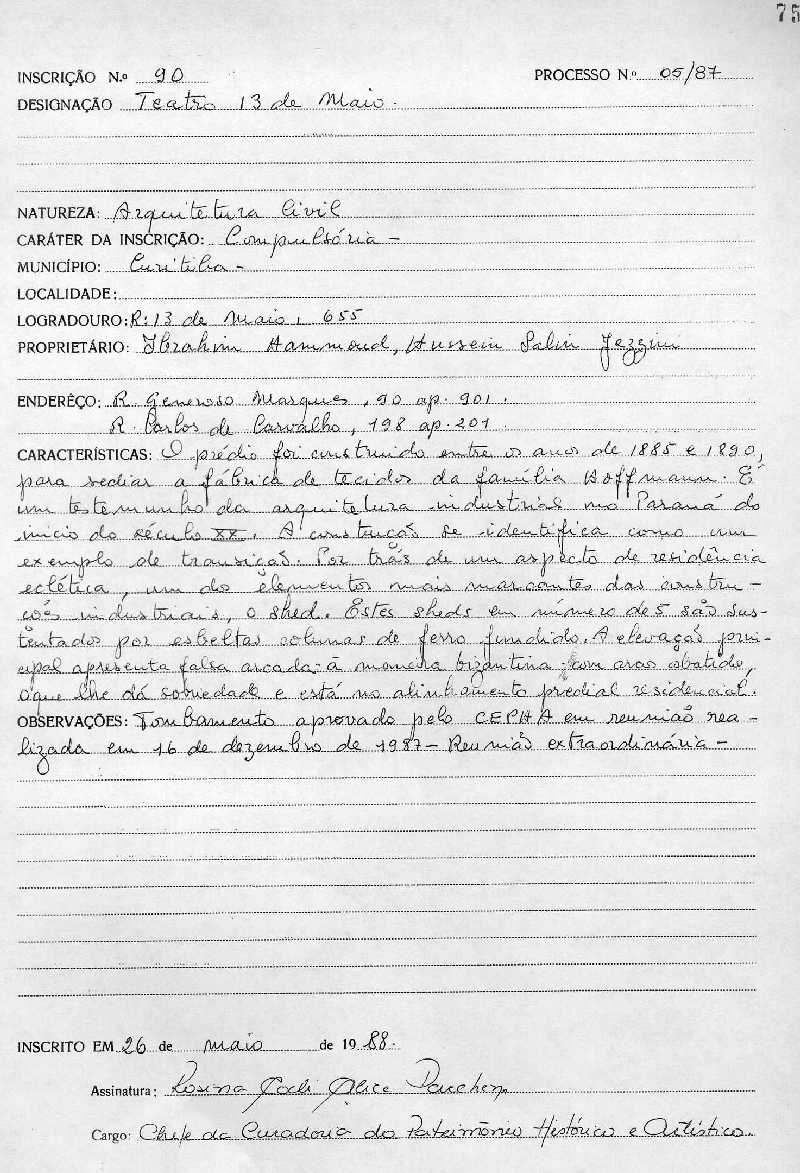 75
INSCRIÇÃO N.º 90 PROCESSO N.º 05/87
DESIGNAÇÃO Teatro 13 de Maio.
NATUREZA: Arquitetura Civil
CARÁTER DA INSCRIÇÃO: Compulsória -
MUNICÍPIO: Curitiba -
LOCALIDADE:
LOGRADOURO: R: 13 de Maio, 655
PROPRIETÁRIO: Ibrahim Hammoud, Hussein Salin Jezzini
ENDERÊÇO: R Generoso Marques, 90 ap. 901.
R. Carlos de Carvalho, 198 ap. 201
CARACTERÍSTICAS: O prédio foi construido entre os anos de 1885 e 1890,
para sediar a fábrica de tecidos da família Hoffmann. É
um testemunho da arquitetura industrial no Paraná do
inicio do século XX. A construção se identifica como um
exemplo de transição. Por trás de um aspecto de residência
eclética, um dos elementos mais marcantes das constru-
ções industriais, o shed. Estes sheds em número de 5 são sus-
tentados por esbeltas colunas de ferro fundido. A elevação prin-
cipal apresenta falsa arcada à maneira bizantina com arco abatido,
o que lhe dá sobriedade e está no alinhamento predial residencial.
OBSERVAÇÕES: Tombamento aprovado pelo CEPHA em reunião rea-
lizada em 16 de dezembro de 1987 - Reunião extraordinária -
INSCRITO EM 26 de maio de 1988.
Assinatura: Rosina Alice Parchen
Cargo: Chefe da Curadoria do Patrimônio Histórico e Artístico.